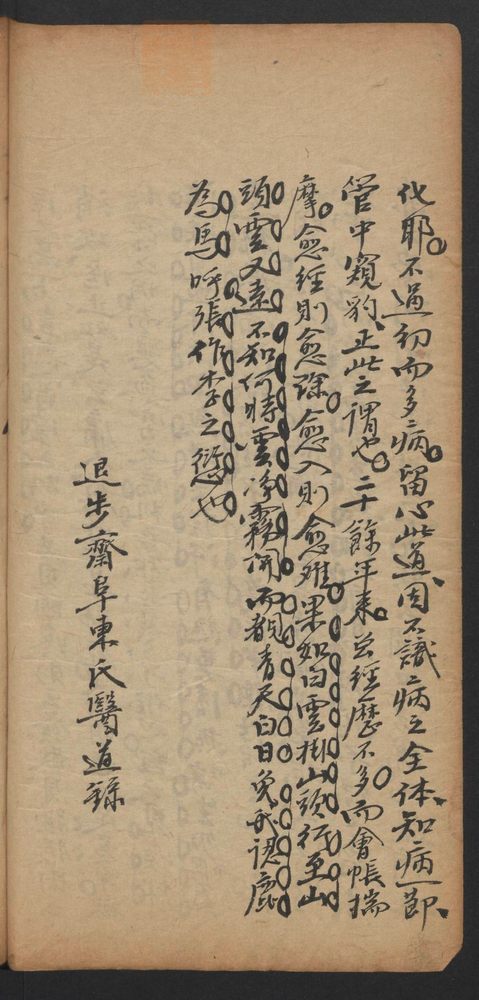 代耶不過初而多病留心此道固不識病之全体知病一節
管中窺豹正此之謂也二十餘年來啓經歷不多而會帳揣
摩愈經則愈深愈入則愈难果如白雲掛山頭行至山
頭雲又遠不知何時雲净霧開而覩青天白日免我認鹿
為馬呼張作李之愆也
退步齋阜東氏醫道録